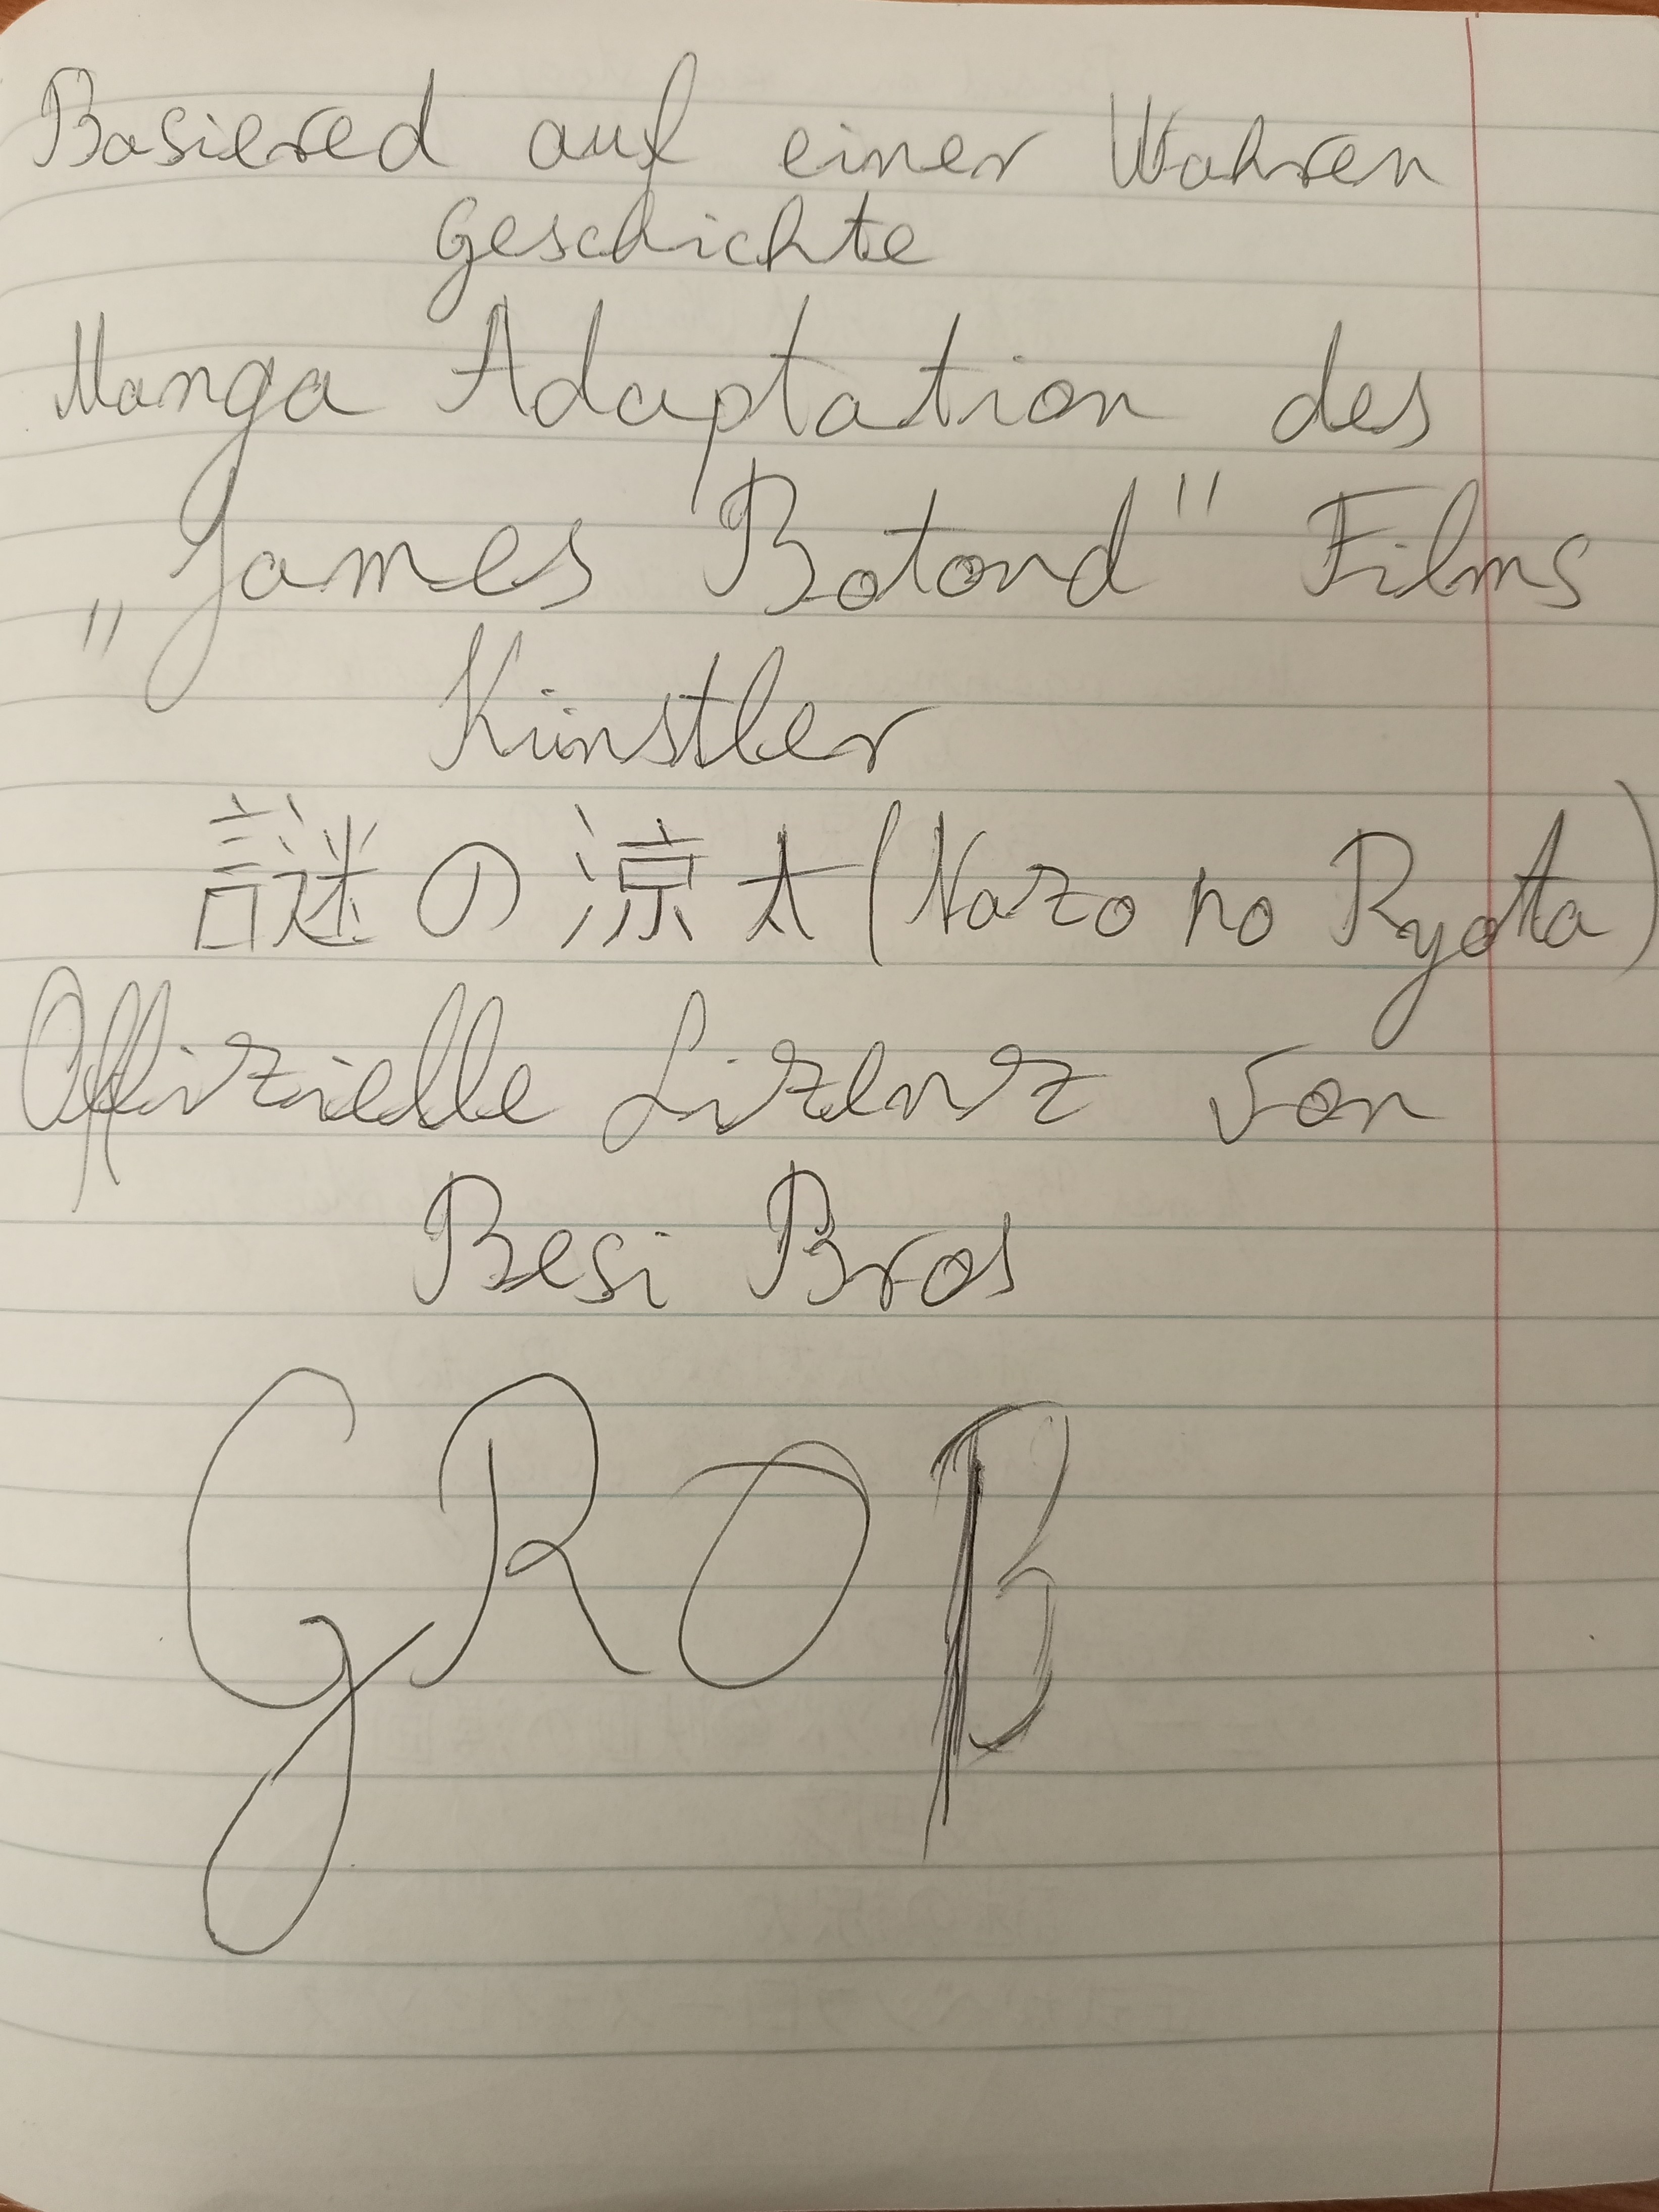 Basiered auf einer Wahren
Geschichte
Manga Adaptation des
„James Botond" Films
Künstler
謎の涼太(Nazo no Ryota)
Offizielle Lizenz von
Besi Bros
GROB